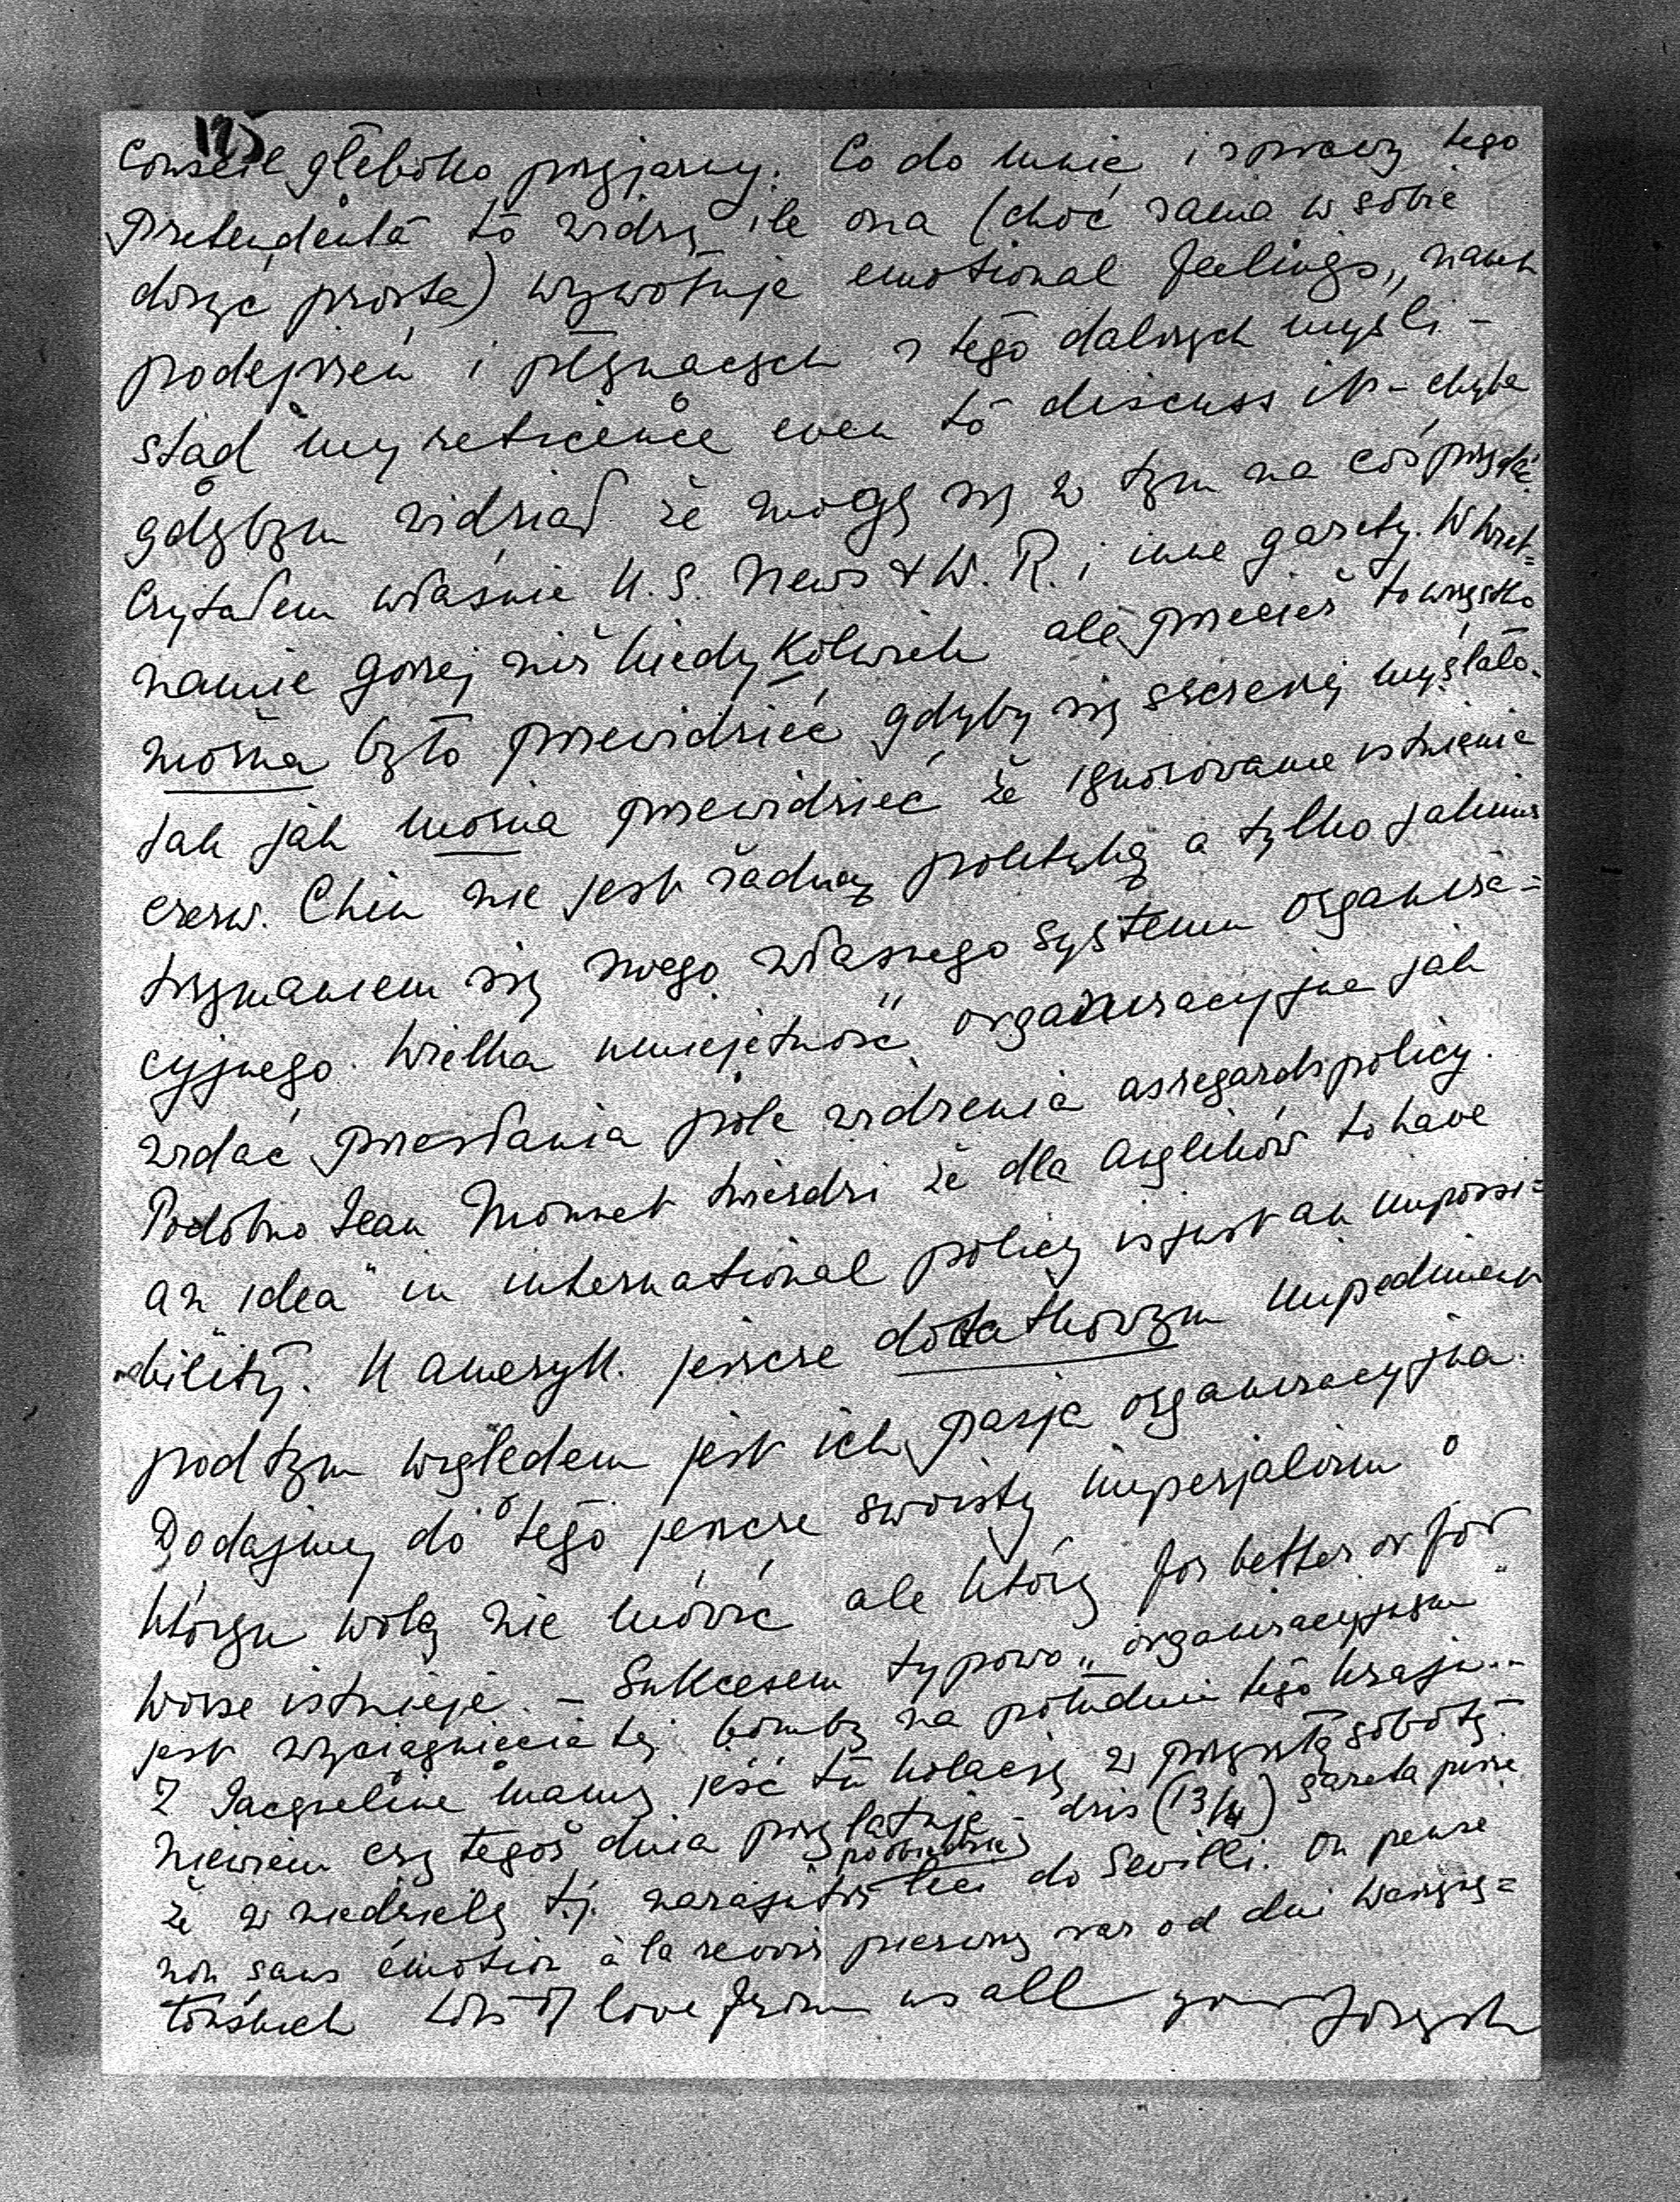 125
conseil głęboko przyjazny. Co do mnie i sprawy tego
Pretendenta to widzę ile ona (choć sama w sobie
dosyć prosta) wywołuje emotional feelings,
podejrzeń i płynących z tego dalszych myśli -
stąd my reticence even to discuss it - chyba
gdybym widział że mogę się w tym na coś przydać
Czytałem właśnie U.S. News & W. R. i inne gazety. W Wiet=
namie gorzej niż kiedykolwiek ale przecież to wszystko
można było przewidzieć gdyby się szczerzej myślało.
tak jak można przewidzieć że ignorowanie istnienia
czerw. Chin nie jest żadną polityką a tylko jakimś
trzymaniem się swego własnego systemu organiza=
cyjnego. Wielka „umiejętność" organizacyjna jak
widać przesłania pole widzenia as regards policy.
Podobno Jean Monnet twierdzi że dla Anglików to have
"an idea" in international policy is just an impossi=
bility. U Ameryk. jeszcze dodatkowym impediment
pod tym względem jest ich pasja organizacyjna.
Dodajmy do tego jeszcze swoisty imperjalizm o
którym wolę nie mówić ale który for better or for
worse istnieje. - Sukcesem typowo „organizacyjnym"
jest wyciągnięcie tej bomby na południu tego kraju..-
Z Jacqueline mamy jeść tu kolację w przyszłą sobotę.-
Niewiem czy tegoż dnia przylatuje - dziś (13/IV) gazeta pisze
że w niedzielę t.j. nazajutrz po obiedzie leci do Sevilli. On pense
non sans émotion à la revoir pierwszy raz od dni waszyng=
tońskich Lots of love from us all your Józych